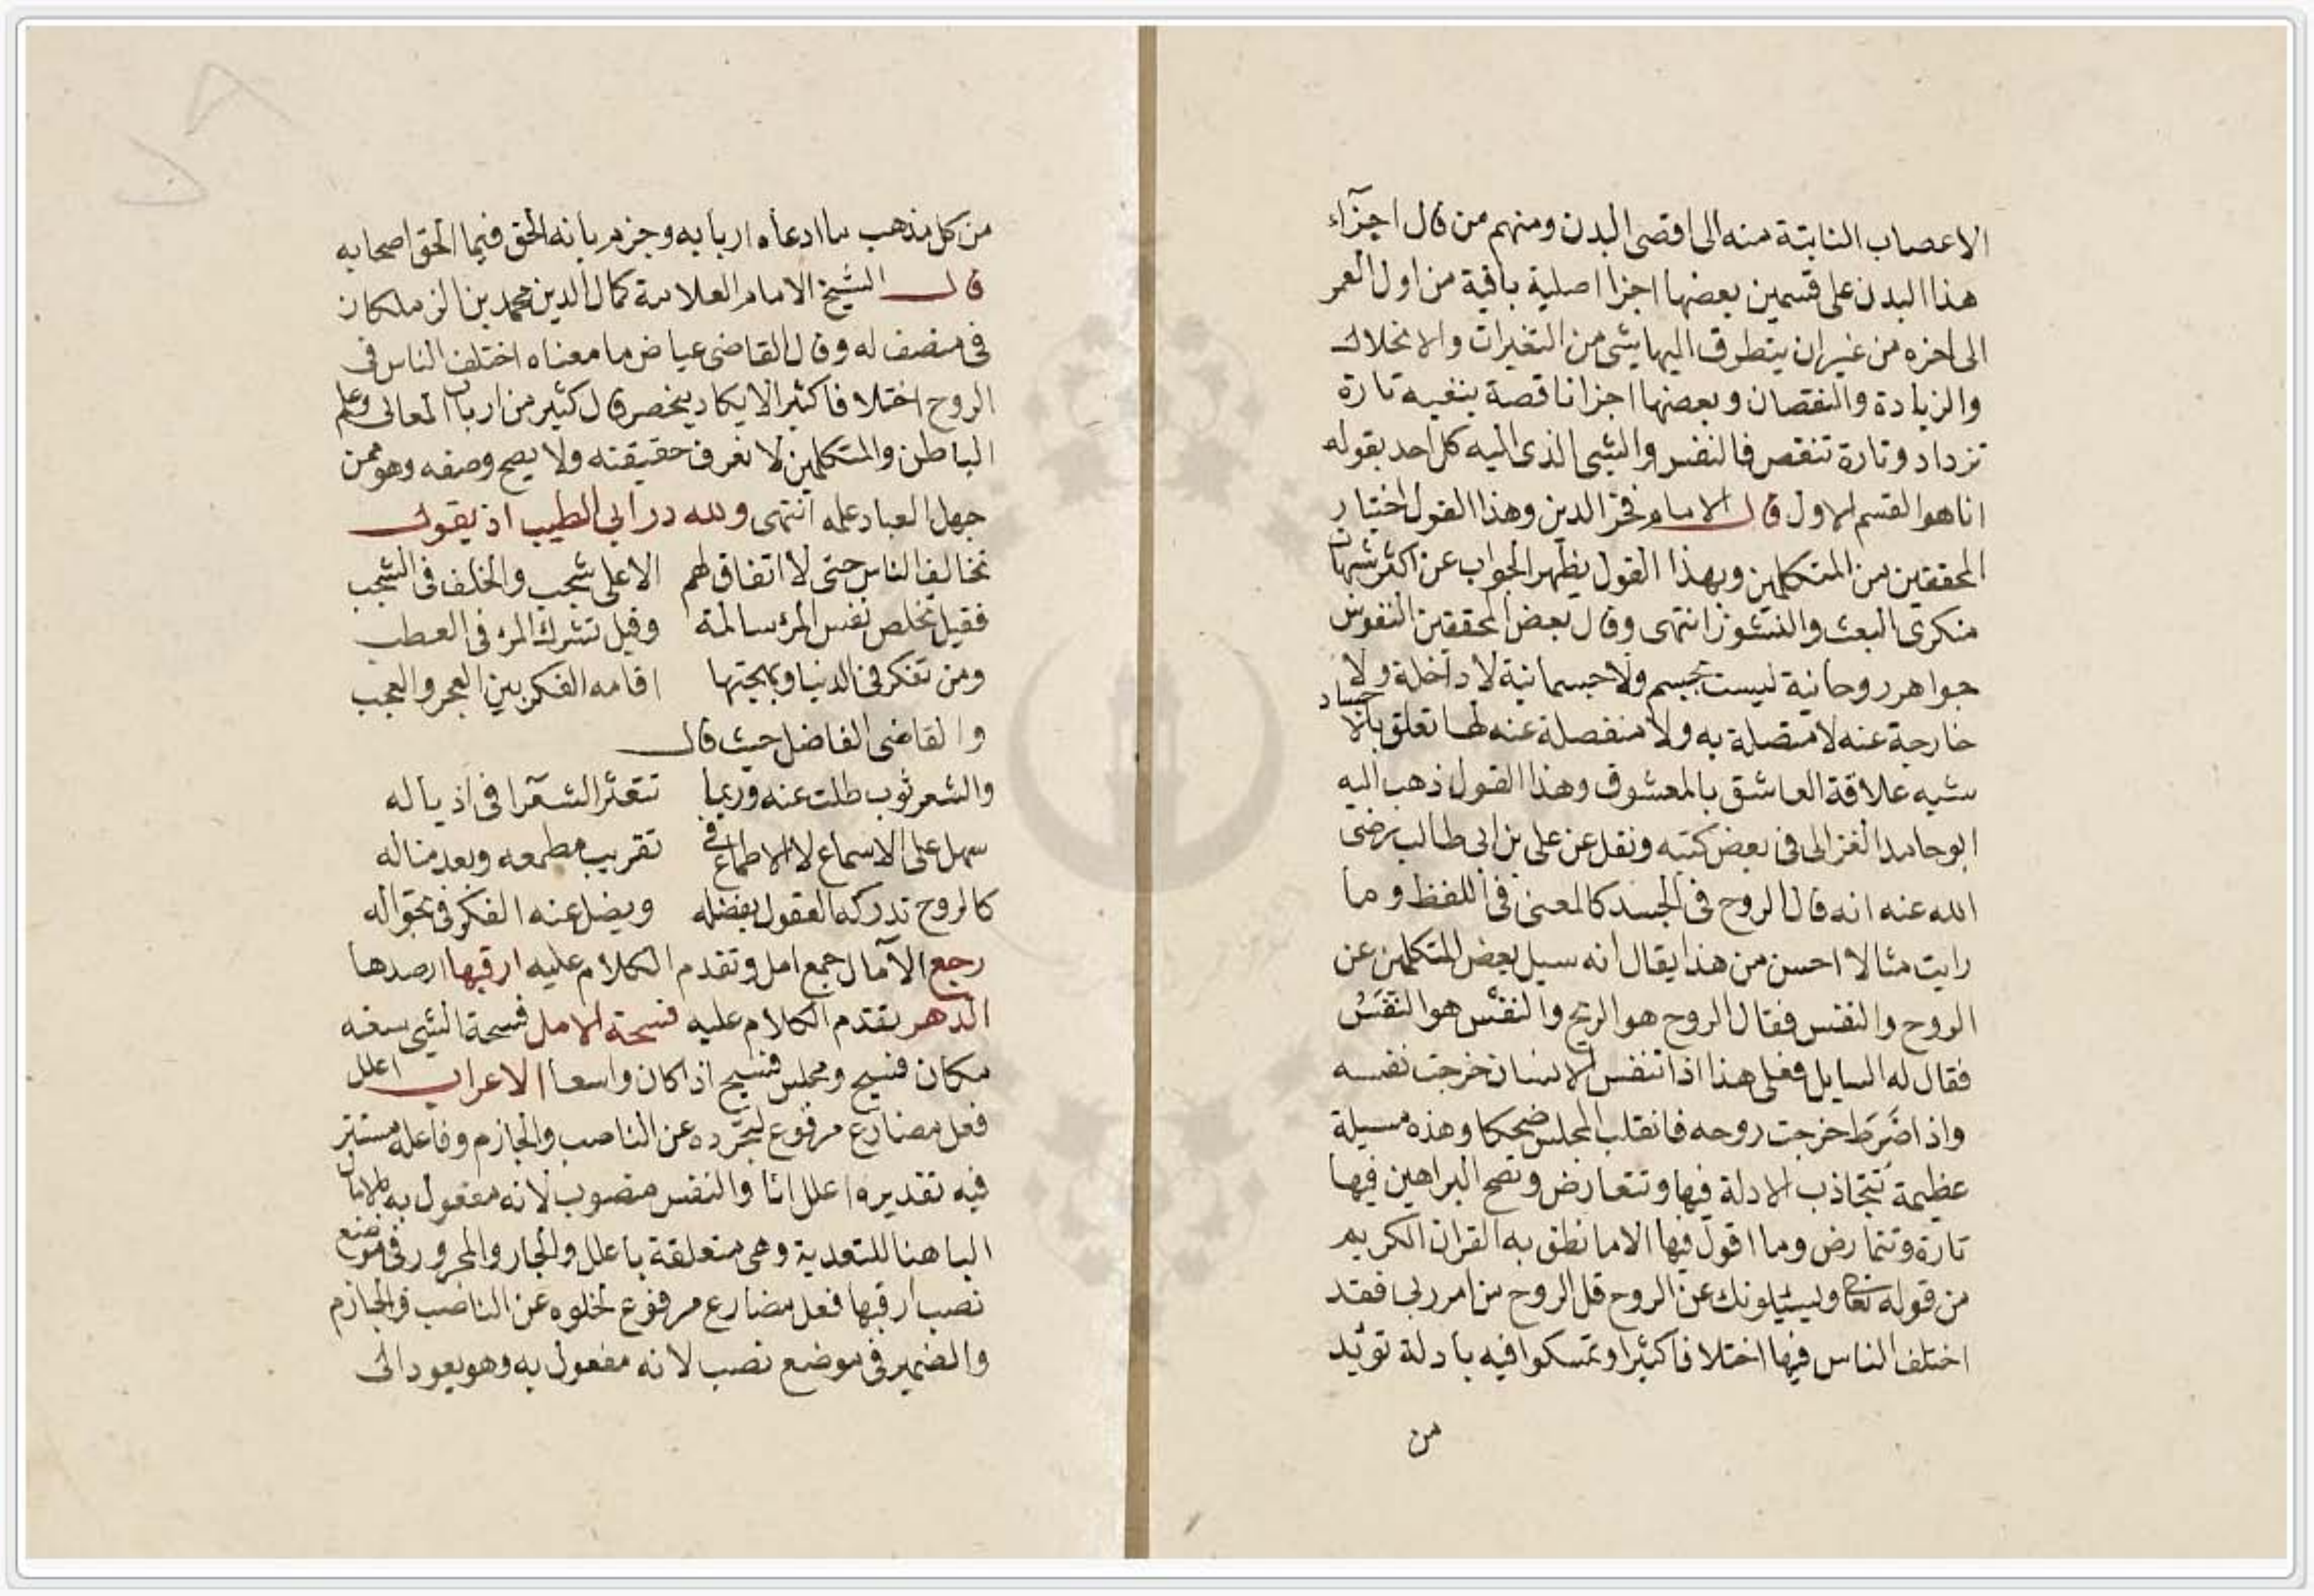 الاعصاب النابتة منه الى اقصى البدن ومنهم من قال اجزآء
هذا البدن على قسمين بعضها اجزا اصلية باقية من اول العمر
الى اخره من غير ان يتطرق اليها شى من التغيرات والانحلال
والزيادة والنقصان وبعضها اجزا ناقصة تارة
تزداد وتارة تنقص فالنفس والشى الذى اليه كل احد بقوله
انا هو القسم الاول قال الامام فخر الدين وهذا القول اختيار
المحققين من المتكلمين وبهذا القول يظهر الجواب عن اكثر شبهات
منكرى البعث والنشوز انتهى وقال بعض المحققين النفوس
جواهر روحانية ليست بجسم ولا جسمانية لا داخلة ولا
خارجة عنه لا متصلة به ولا منفصلة عنه لها تعلق بالاجساد
شبيه علاقة العاشق بالمعشوق وهذا القول ذهب اليه
ابو حامد الغزالى فى بعض كتبه ونقل عن على بن ابى طالب رضى
الله عنه انه قال الروح فى الجسد كالمعنى فى اللفظ وما
رايت مثالا احسن من هذا يقال انه سيل بعض المتكلمين عن
الروح والنفس فقال الروح هو الريح والنفس هو النفَسُ
فقال له السايل فعلى هذا اذا تنفس الانسان خرجت نفسه
واذا ضَرَط خرجت روحه فانقلب المجلس ضحكا وهذه مسيلة
عظيمة تتجاذب الادلة فيها وتتعارض وتصح البراهين فيها
تارة وتتمارض وما اقول فيها الا ما نطق به القران الكريم
من قوله تعالى ويسئلونك عن الروح قل الروح من امر ربى فقد
اختلف الناس فيها اختلافا كثيرا وتمسكوا فيه بادلة تؤيد
من
من كل مذهب ما ادعاه اربابه وجزم بانه الحق فيما الحق اصحابه
قال الشيخ الامام العلامة كمال الدين محمد بن الزملكان
فى مصنف له وقال القاضى عياض ما معناه اختلف الناس فى
الروح اختلافا كثيرا لا يكاد ينحصر قال كثير من ارباب المعانى وعلم
الباطن والمتكلمين لا نعرف حقيقته ولا يصح وصفه وهو ممن
جهل العباد علمه انتهى ولله در ابى الطيب اذ يقول
تخالف الناس حتى لا اتفاق لهم الا على شجب والخلف فى الشجب
فقيل تخلص نفس المرء سالمة وقيل تشرك المرء فى العطب
ومن تفكر فى الدنيا وبهجتها اقامه الفكر بين العجز والعجب
والقاضى الفاضل حيث قال
والشعر ثوب طلت عنه وربما تتعثر الشعرا فى اذياله
سهل على الاسماع لا الاطماع فى تقريب مطمعه وبعد مناله
كالروح تدركه العقول بفضله ويضل عنه الفكر فى تجواله
رجع الآمال جمع امل وتقدم الكلام عليه ارقبها ارصدها
الدهر تقدم الكلام عليه فسحة الامل فسحة الشى سعه
مكان فسيح ومجلس فسيح اذا كان واسعا الاعراب اعلل
فعل مضارع مرفوع لتجرده عن الناصب والجازم وفاعله مستتر
فيه تقديره اعلل انا والنفس منصوب لانه مفعول به بالامال
البا هنا للتعدية وهى متعلقة باعلل والجار والمجرور فى موضع
نصب ارقبها فعل مضارع مرفوع لخلوه عن الناصب والجازم
والضمير فى موضع نصب لانه مفعول به وهو يعود الى